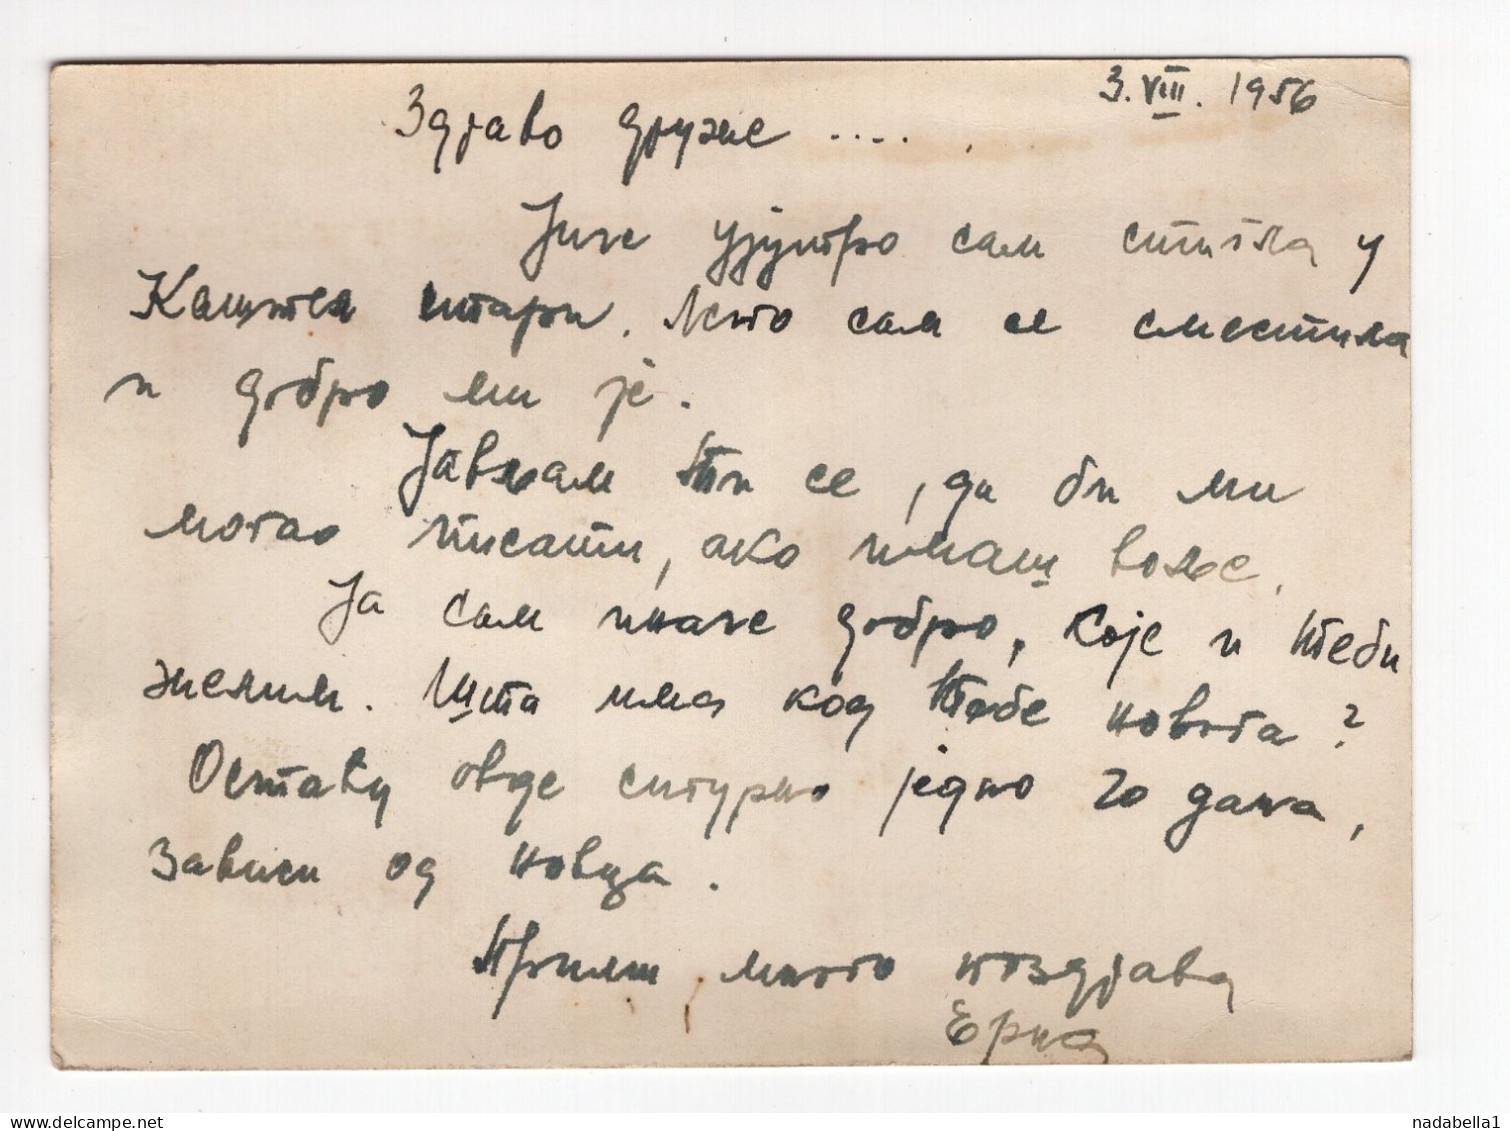 3. VIII. 1956
Здраво друже ....
Јуче ујутро сам стигла у
Каштел Стари. Лепо сам се сместила
и добро ми је.
Јављам Ти се, да би ми
могао писати, ако имаш воље.
Ја сам иначе добро, које и Теби
желим. Шта има код Тебе новога?
Остаћу овде сигурно једно 20 дана,
зависи од новца.
Прими много поздрава
Ерна
nadabella1
www.delcampe.net